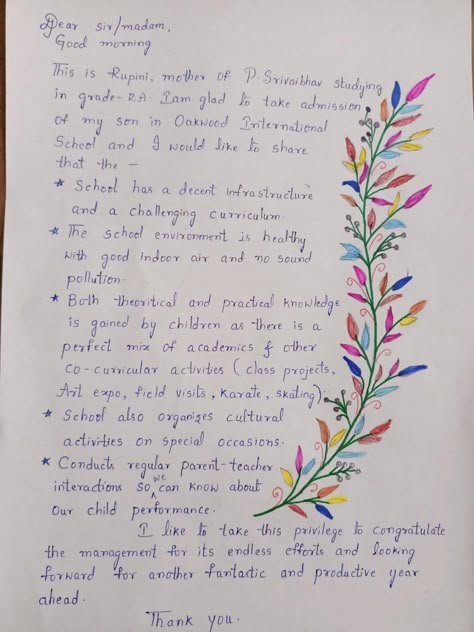 Dear sir/madam,
Good morning
This is Rupini, mother of P. Srivaibhav studying
in grade-2A. I am glad to take admission
of my son in Oakwood International
School and I would like to share
that the -
* School has a decent infrastructure
and a challenging curriculum.
* The school environment is healthy
with good indoor air and no sound
pollution.
* Both theoritical and practical knowledge
is gained by children as there is a
perfect mix of academics & other
co-curricular activities (class projects,
Art expo, field visits, karate, skating).
* School also organizes cultural
activities on special occasions.
* Conducts regular parent-teacher
interactions so we can know about
our child performance.
I like to take this privilege to congratulate
the management for its endless efforts and looking
forward for another fantastic and productive year
ahead.
Thank you.